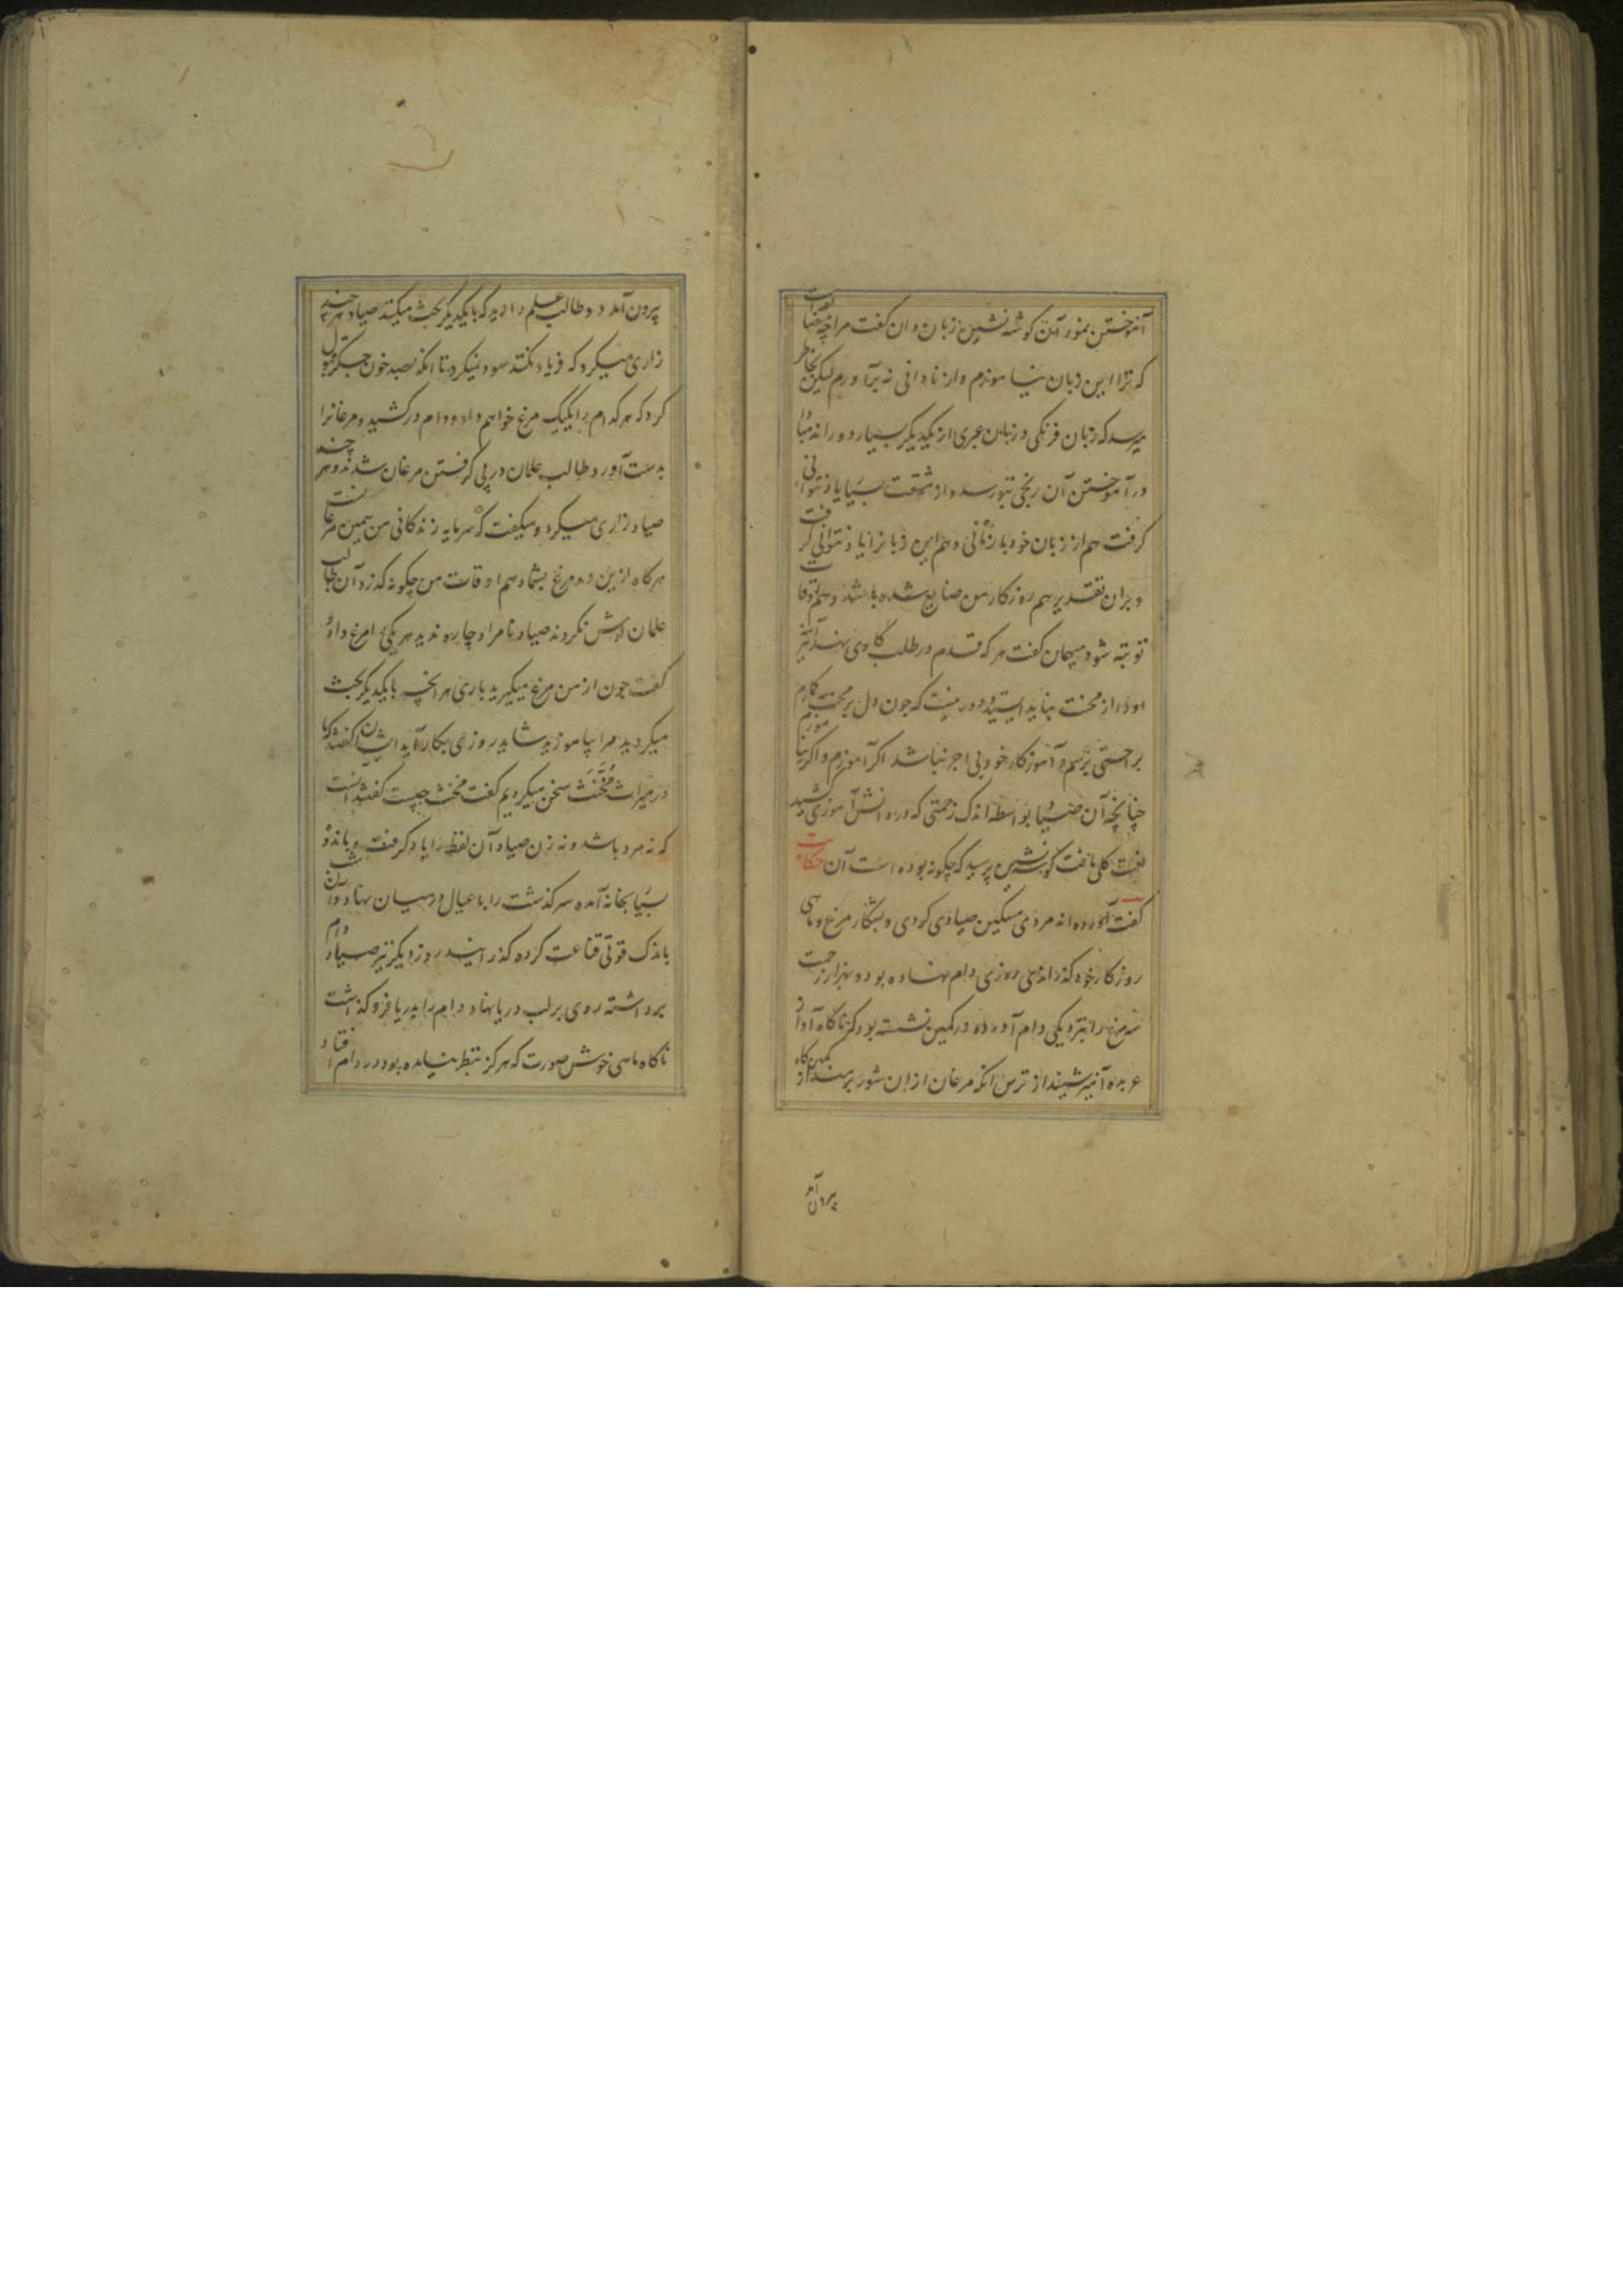 آموختن نمود آن گوشه نشین زبان دان گفت مرا چه مضایقه است
که ترا این زبان بیاموزم و از نادانی نه برآورم لیکن بخاطر
میرسد که زبان فرنگی و زبان عبری از یکدیگر بسیار دوراند مبادا
در آموختن آن رنجی بتو رسد و از مشقت بسیار یاد نتوانی
گرفت هم از زبان خود بازمانی و هم این زبانرا یاد نتوانی گرفت
و بران تقدیر هم روزکار من ضایع شده باشد و هم اوقات
تو تبه شود میهمان گفت هر که قدم در طلب کاری نهد
او را از محنت نباید و دور نیست که چون دل بر محنت گمارم
براحتی برسم و آموزگار خود بی اجر نباشد اگر آموزم و اگر نیاموزم
چنانچه آن صیاد بواسطه اندک زحمتی که در دانش آموزی کشید
منفعت کلی یافت گوشه نشین پرسید که چگونه بوده است آن حکایت
گفت آورده اند مردی مسکین صیادی کردی و بشکار مرغ و ماهی
روزکار خود گذراندی روزی دام نهاده بود و بهزار زحمت
سه مرغ را بنزدیکی دام آورده در کمین نشسته بود که ناگاه آواز
عربده آمیز شنید از ترس آنکه مرغان ازان شور برمند از کمین گاه
بیرون آمد
بیرون آمد دو طالب علم را دید که بایکدیگر بحث میکنند صیاد هر چند
زاری میکرد که فریاد نکنند سود نمیکرد تا آنکه بصد خون جگر قبول
کرد که هر کدام را یکیک مرغ خواهم داد و دام در کشید و مرغانرا
بدست آورد طالب علمان در پی گرفتن مرغان شدند و هر چند
صیاد زاری میکرد و میگفت که سرمایه زندگانی من همین مرغانست
هرگاه ازین دو مرغ بشما دهم اوقات من چگونه گذرد آن طالب
علمان گوش نکردند صیاد نامراد چاره ندید هر یکی را مرغ داده
گفت چون از من مرغ میگیرید باری هر آنچه بایکدیگر بحث
میکردید مرا بیاموزید شاید روزی بکار آید ایشان گفتند که ما
در میراث مُخَنَّث سخن میکردیم گفت مخنث چیست گفتند آنست
که نه مرد باشد و نه زن صیاد آن لفظ را یاد گرفت و باندوه
بسیار بخانه آمده سرگذشت را با عیال در میان نهاد و آن شب
باندک قوتی قناعت کرده گذرانید روز دیگر نیز صیاد دام
برداشته روی بر لب دریا نهاد و دام را بدریا فرو گذاشت
ناگاه ماهی خوش صورت که هرگز بنظر نیامده بود در دام افتاد